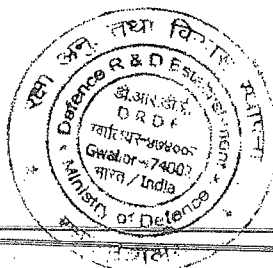 रक्षा अनु. तथा विकास स्थापना
Defence R & D Establishment
डी.आर.डी.ई.
D R D E
ग्वालियर-४७४००२
Gwalior-474002
भारत / India
Ministry of Defence